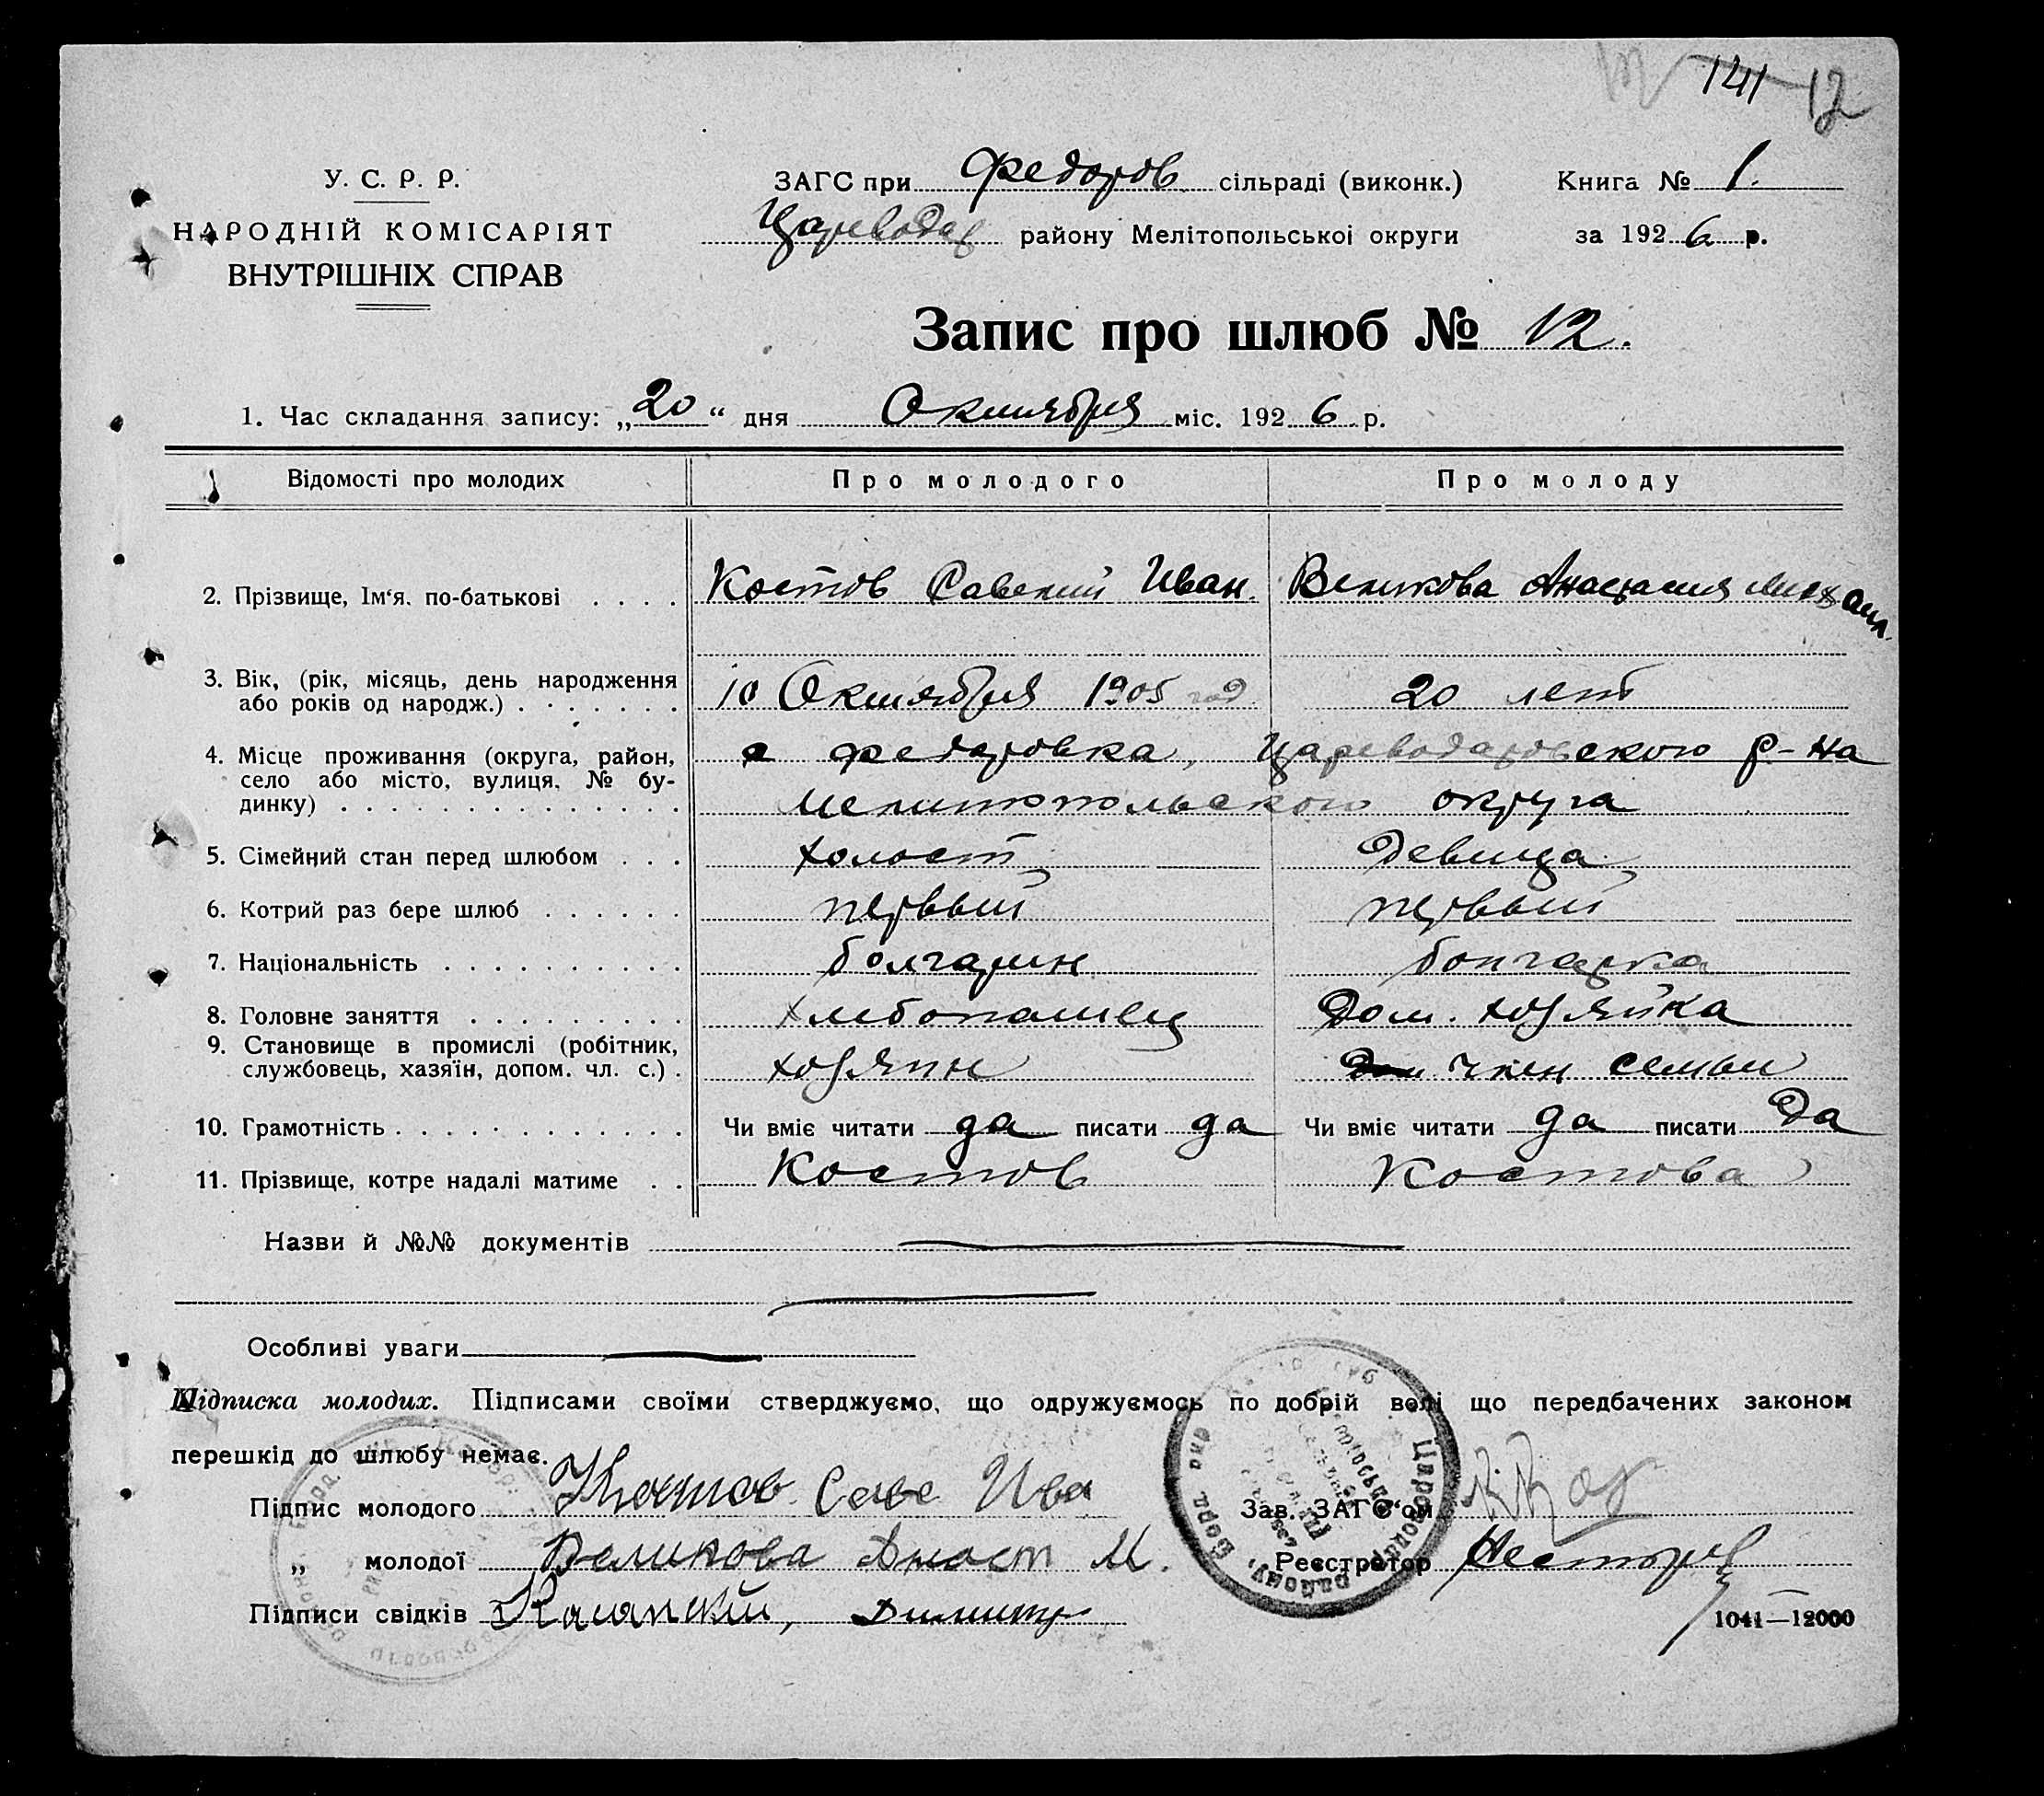 141 12
У. С. Р. Р.
НАРОДНІЙ КОМІСАРІЯТ
ВНУТРІШНІХ СПРАВ
ЗАГС при Федоров сільраді (виконк.) Книга № 1.
Цареводар району Мелітопольської округи за 1926 р.
Запис про шлюб № 12.
1. Час складання запису: „20“ дня Октября міс. 1926 р.
Відомості про молодих Про молодого Про молоду
2. Прізвище, Ім‘я, по-батькові . . . . Костов Савелий Иван. Великова Анастасия Михаил.
3. Вік, (рік, місяць, день народження
або років од народж.) . . . . . . . 10 Октября 1905 год. 20 лет
4. Місце проживання (округа, район,
село або місто, вулиця, № бу-
динку) . . . . . . . . . . . . . .
с Федоровка, Цареводаровского р-на
Мелитопольского округа
5. Сімейний стан перед шлюбом . . . холост девица
6. Котрий раз бере шлюб . . . . . . первый первый
7. Національність . . . . . . . . . . болгарин болгарка
8. Головне заняття . . . . . . . . . хлебопашец Дом. хозяйка
9. Становище в промислі (робітник,
службовець, хазяїн, допом. чл. с.) . хозяин член семьи
10. Грамотність . . . . . . . . . . . . Чи вміє читати да писати да Чи вміє читати да писати да
11. Прізвище, котре надалі матиме . . Костов Костова
Назви й №№ документів
Особливі уваги
Підписка молодих. Підписами своїми стверджуємо, що одружуємось по добрій волі що передбачених законом
перешкід до шлюбу немає.
Підпис молодого Костов Саве Ива Зав. ЗАГС‘ом
„ молодої Великова Анаст М. Реєстратор Нестор
Підписи свідків Димитр
1041—12000